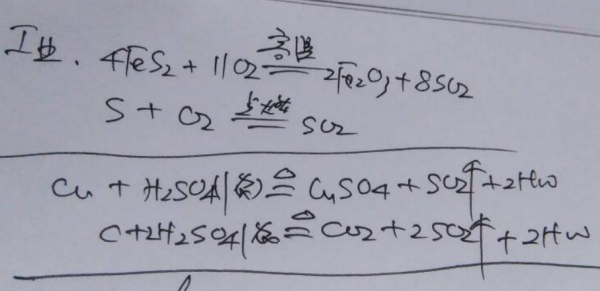 工业. 4FeS2 + 11O2 高温 2Fe2O3 + 8SO2
S + O2 点燃 SO2
Cu + H2SO4(浓) △ CuSO4 + SO2↑ + 2H2O
C + 2H2SO4(浓) △ CO2 + 2SO2↑ + 2H2O